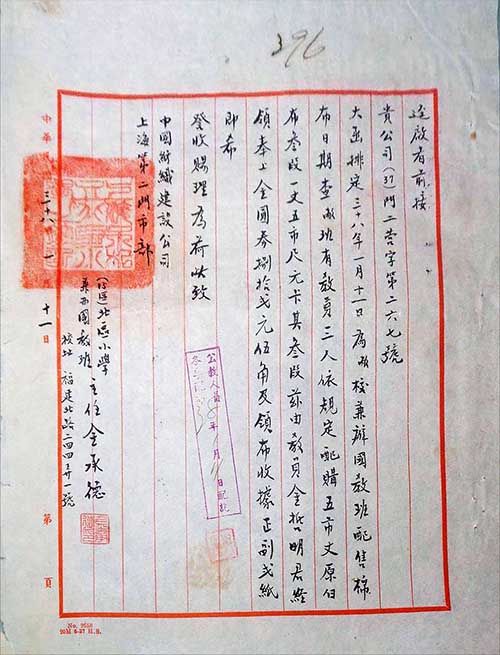 296
逕啟者前接
貴公司(37)門二营字第二六七號
大函排定三十八年一月十一日為敝校兼辦國教班配售棉
布日期查敝班有教員三人依規定配購五市丈原白
布叁段一丈五市尺元卡其叁段茲由教員金哲明君經
領奉上金圓券捌拾弍元伍角及領布收據正副弍紙
即希
發收賜理為荷此致
中國紡織建設公司
上海第二門市部
北區小學
兼西國教班主任金承德
校址 福建北路二四四弄一號
中華民 三十八 一 十一日
第 頁
公教人員 年 月 日配訖
No. 9258
20M 6-37 H.S.